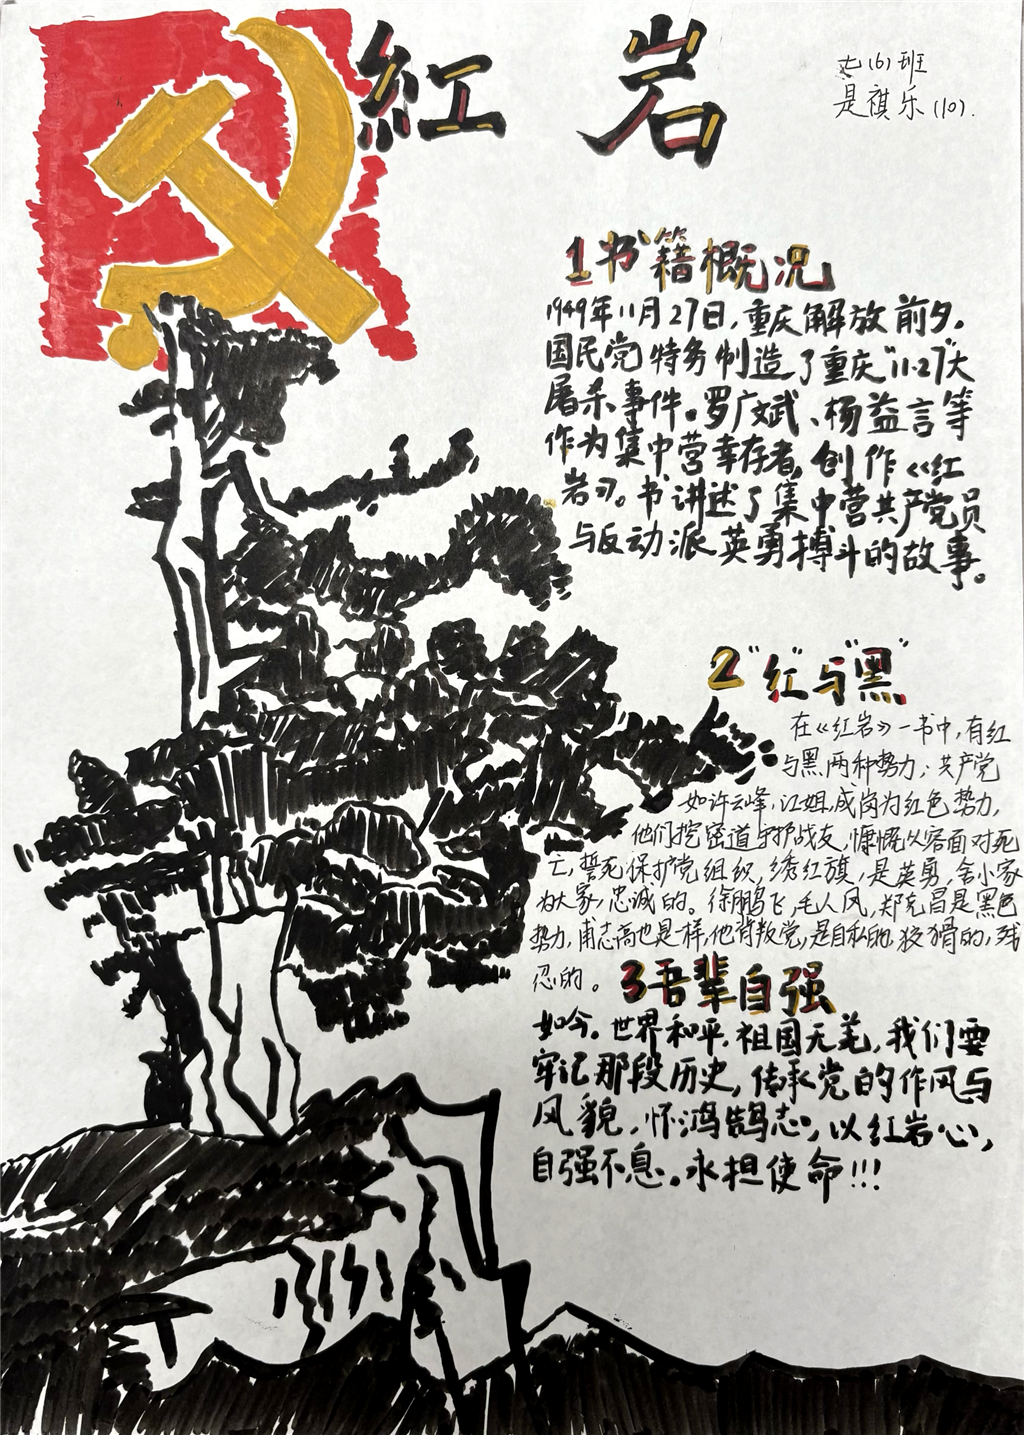 紅岩
七(6)班
是祺乐(10).
1书籍概况
1949年11月27日,重庆解放前夕。
国民党特务制造了重庆"11·27"大
屠杀事件。罗广斌、杨益言等
作为集中营幸存者,创作《红
岩》。书讲述了集中营共产党员
与反动派英勇搏斗的故事。
2"红"与"黑"
在《红岩》一书中,有红
与黑两种势力:共产党
如许云峰,江姐,成岗为红色势力,
他们挖密道守护战友,慷慨从容面对死
亡,誓死保护党组织,绣红旗,是英勇,舍小家
为大家,忠诚的。徐鹏飞,毛人风,郑克昌是黑色
势力,甫志高也是一样,他背叛党,是自私的,狡猾的,残
忍的。
3吾辈自强
如今。世界和平,祖国无恙,我们要
牢记那段历史,传承党的作风与
风貌,怀鸿鹄志,以红岩心,
自强不息。永担使命!!!